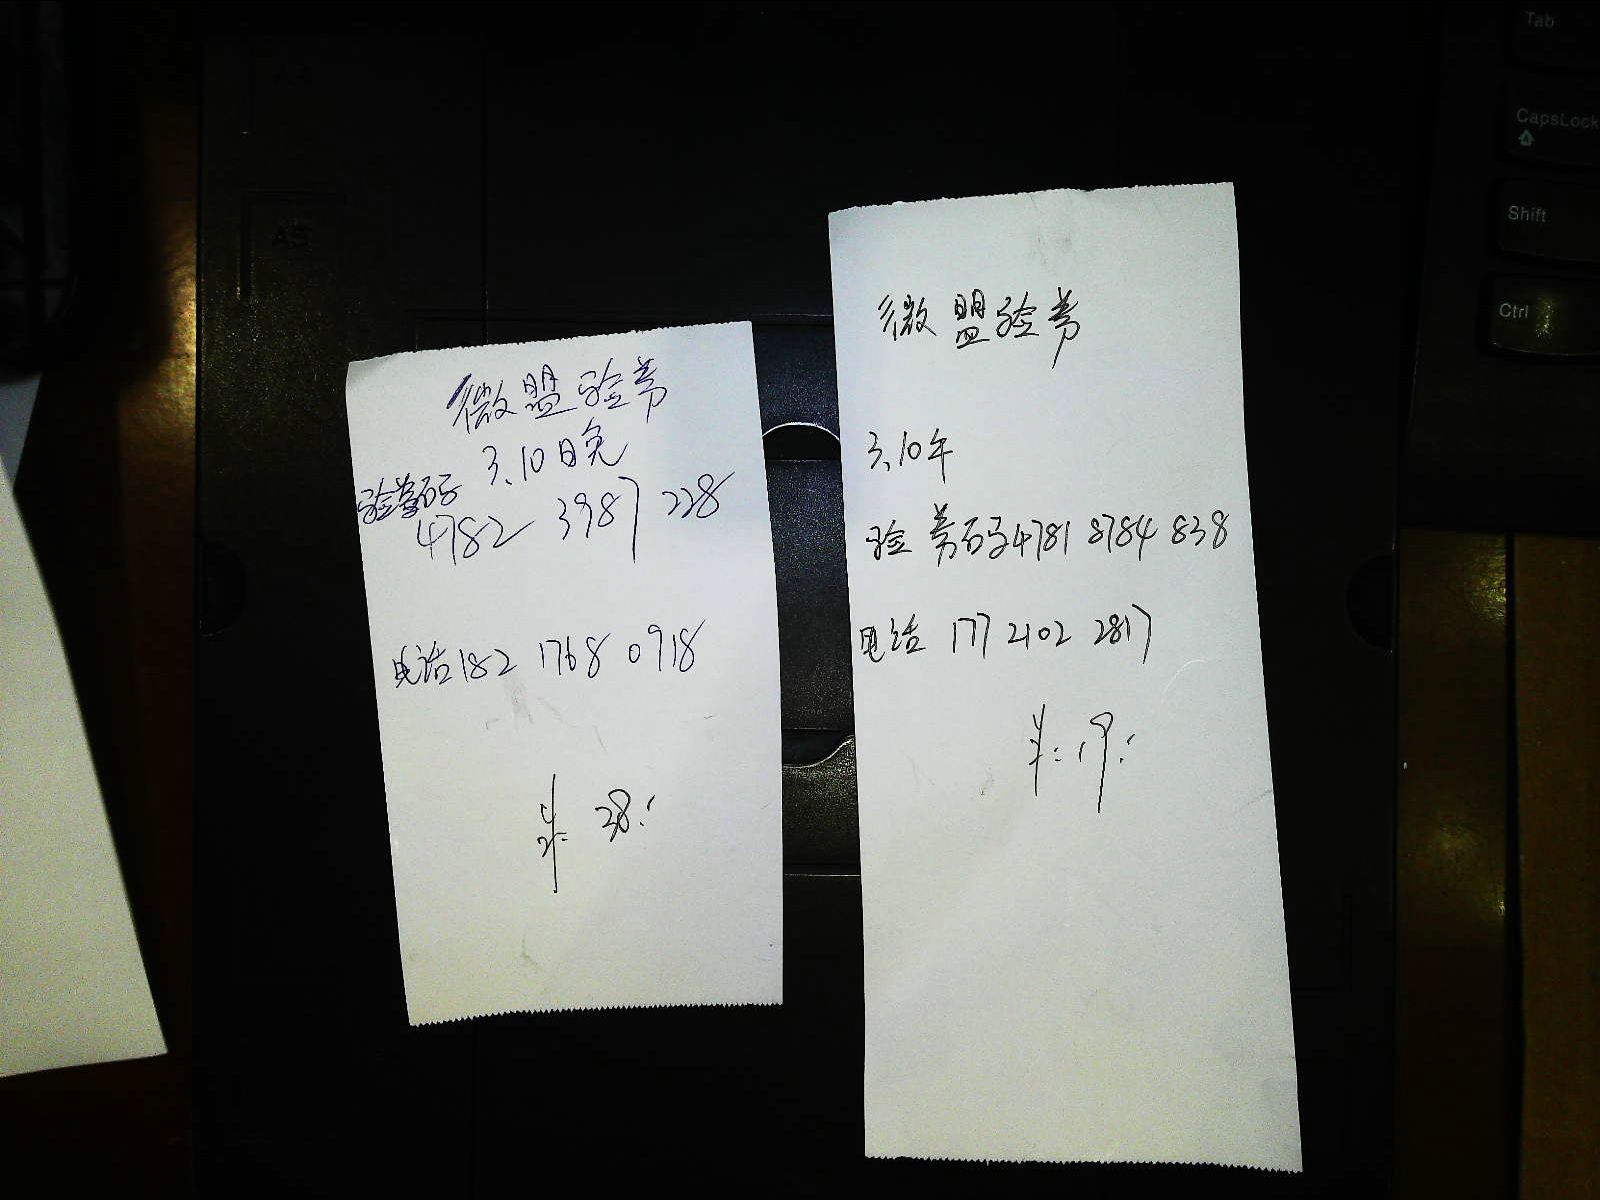 微盟验券
3.10日晚
验券码
4782 3987 228
电话 182 1768 0918
38:
微盟验券
3.10午
验券码 4781 8784 838
电话 177 2102 2817
19:
Tab
CapsLock
Shift
Ctrl
A5